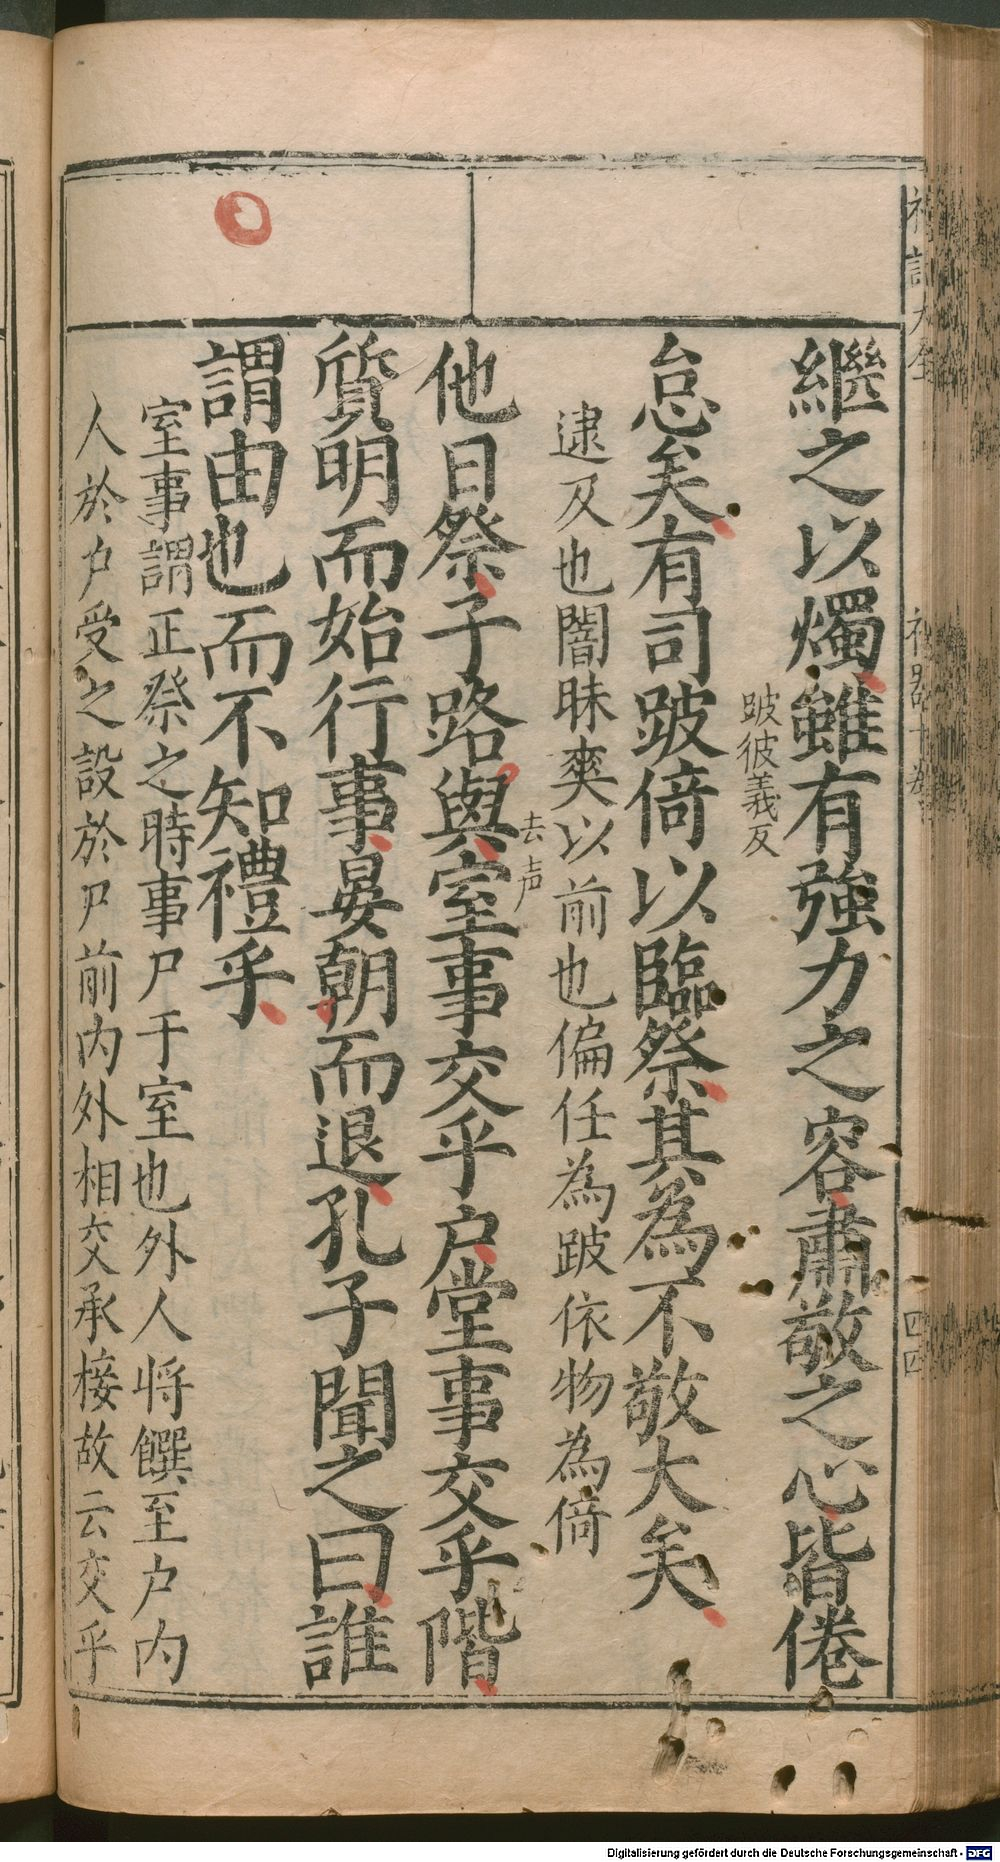 禮記大全
禮器十卷
四四
繼之以燭雖有強力之容肅敬之心皆倦
跛彼義反
怠矣有司跛倚以臨祭其為不敬大矣
逮及也闇昧爽以前也偏任為跛依物為倚
去声
他日祭子路與室事交乎户堂事交乎階
質明而始行事晏朝而退孔子聞之曰誰
謂由也而不知禮乎
室事謂正祭之時事尸于室也外人将饌至户内
人於户受之設於尸前内外相交承接故云交乎
Digitalisierung gefördert durch die Deutsche Forschungsgemeinschaft - DFG